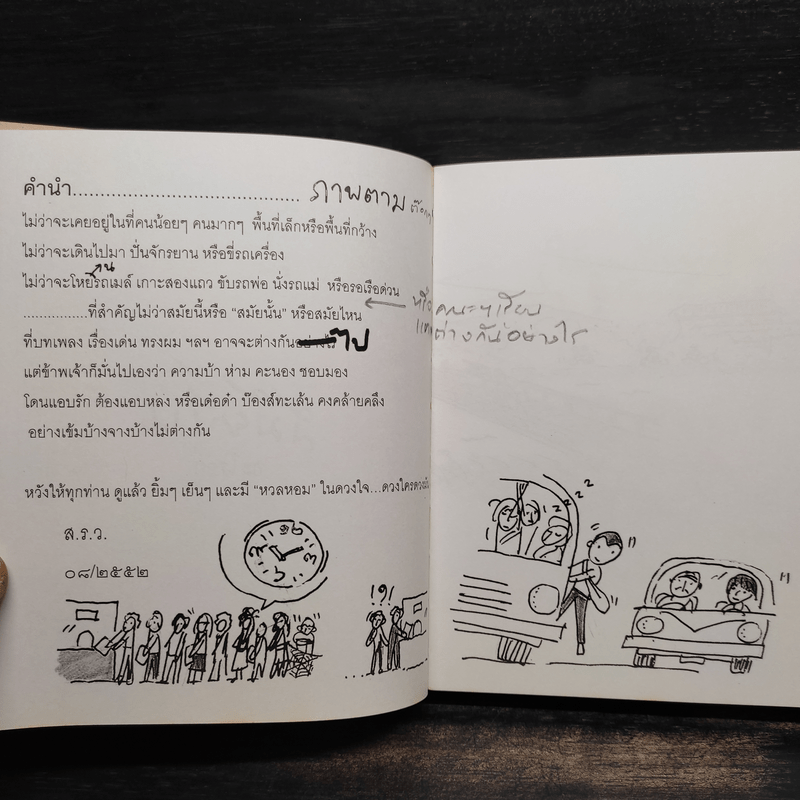 คำนำ........................................ ภาพตาม
ไม่ว่าจะเคยอยู่ในที่คนน้อยๆ คนมากๆ พื้นที่เล็กหรือพื้นที่กว้าง
ไม่ว่าจะเดินไปมา ปั่นจักรยาน หรือขี่รถเครื่อง
น
ไม่ว่าจะโหยรถเมล์ เกาะสองแถว ขับรถพ่อ นั่งรถแม่ หรือรอเรือด่วน
................ที่สำคัญไม่ว่าสมัยนี้หรือ “สมัยนั้น” หรือสมัยไหน
ต่างกันอย่างไร
ที่บทเพลง เรื่องเด่น ทรงผม ฯลฯ อาจจะต่างกันอย่างไร ไป
แต่ข้าพเจ้าก็มั่นไปเองว่า ความบ้า ห่าม คะนอง ชอบมอง
โดนแอบรัก ต้องแอบหล่ง หรือเด๋อด๋า บ๊องส์ทะเล้น คงคล้ายคลึง
อย่างเข้มบ้างจางบ้างไม่ต่างกัน
หวังให้ทุกท่าน ดูแล้ว ยิ้มๆ เย็นๆ และมี “หวลหอม” ในดวงใจ...ดวงใคร
ส.ร.ว.
๐๘/๒๕๕๒
!?!
zzzz